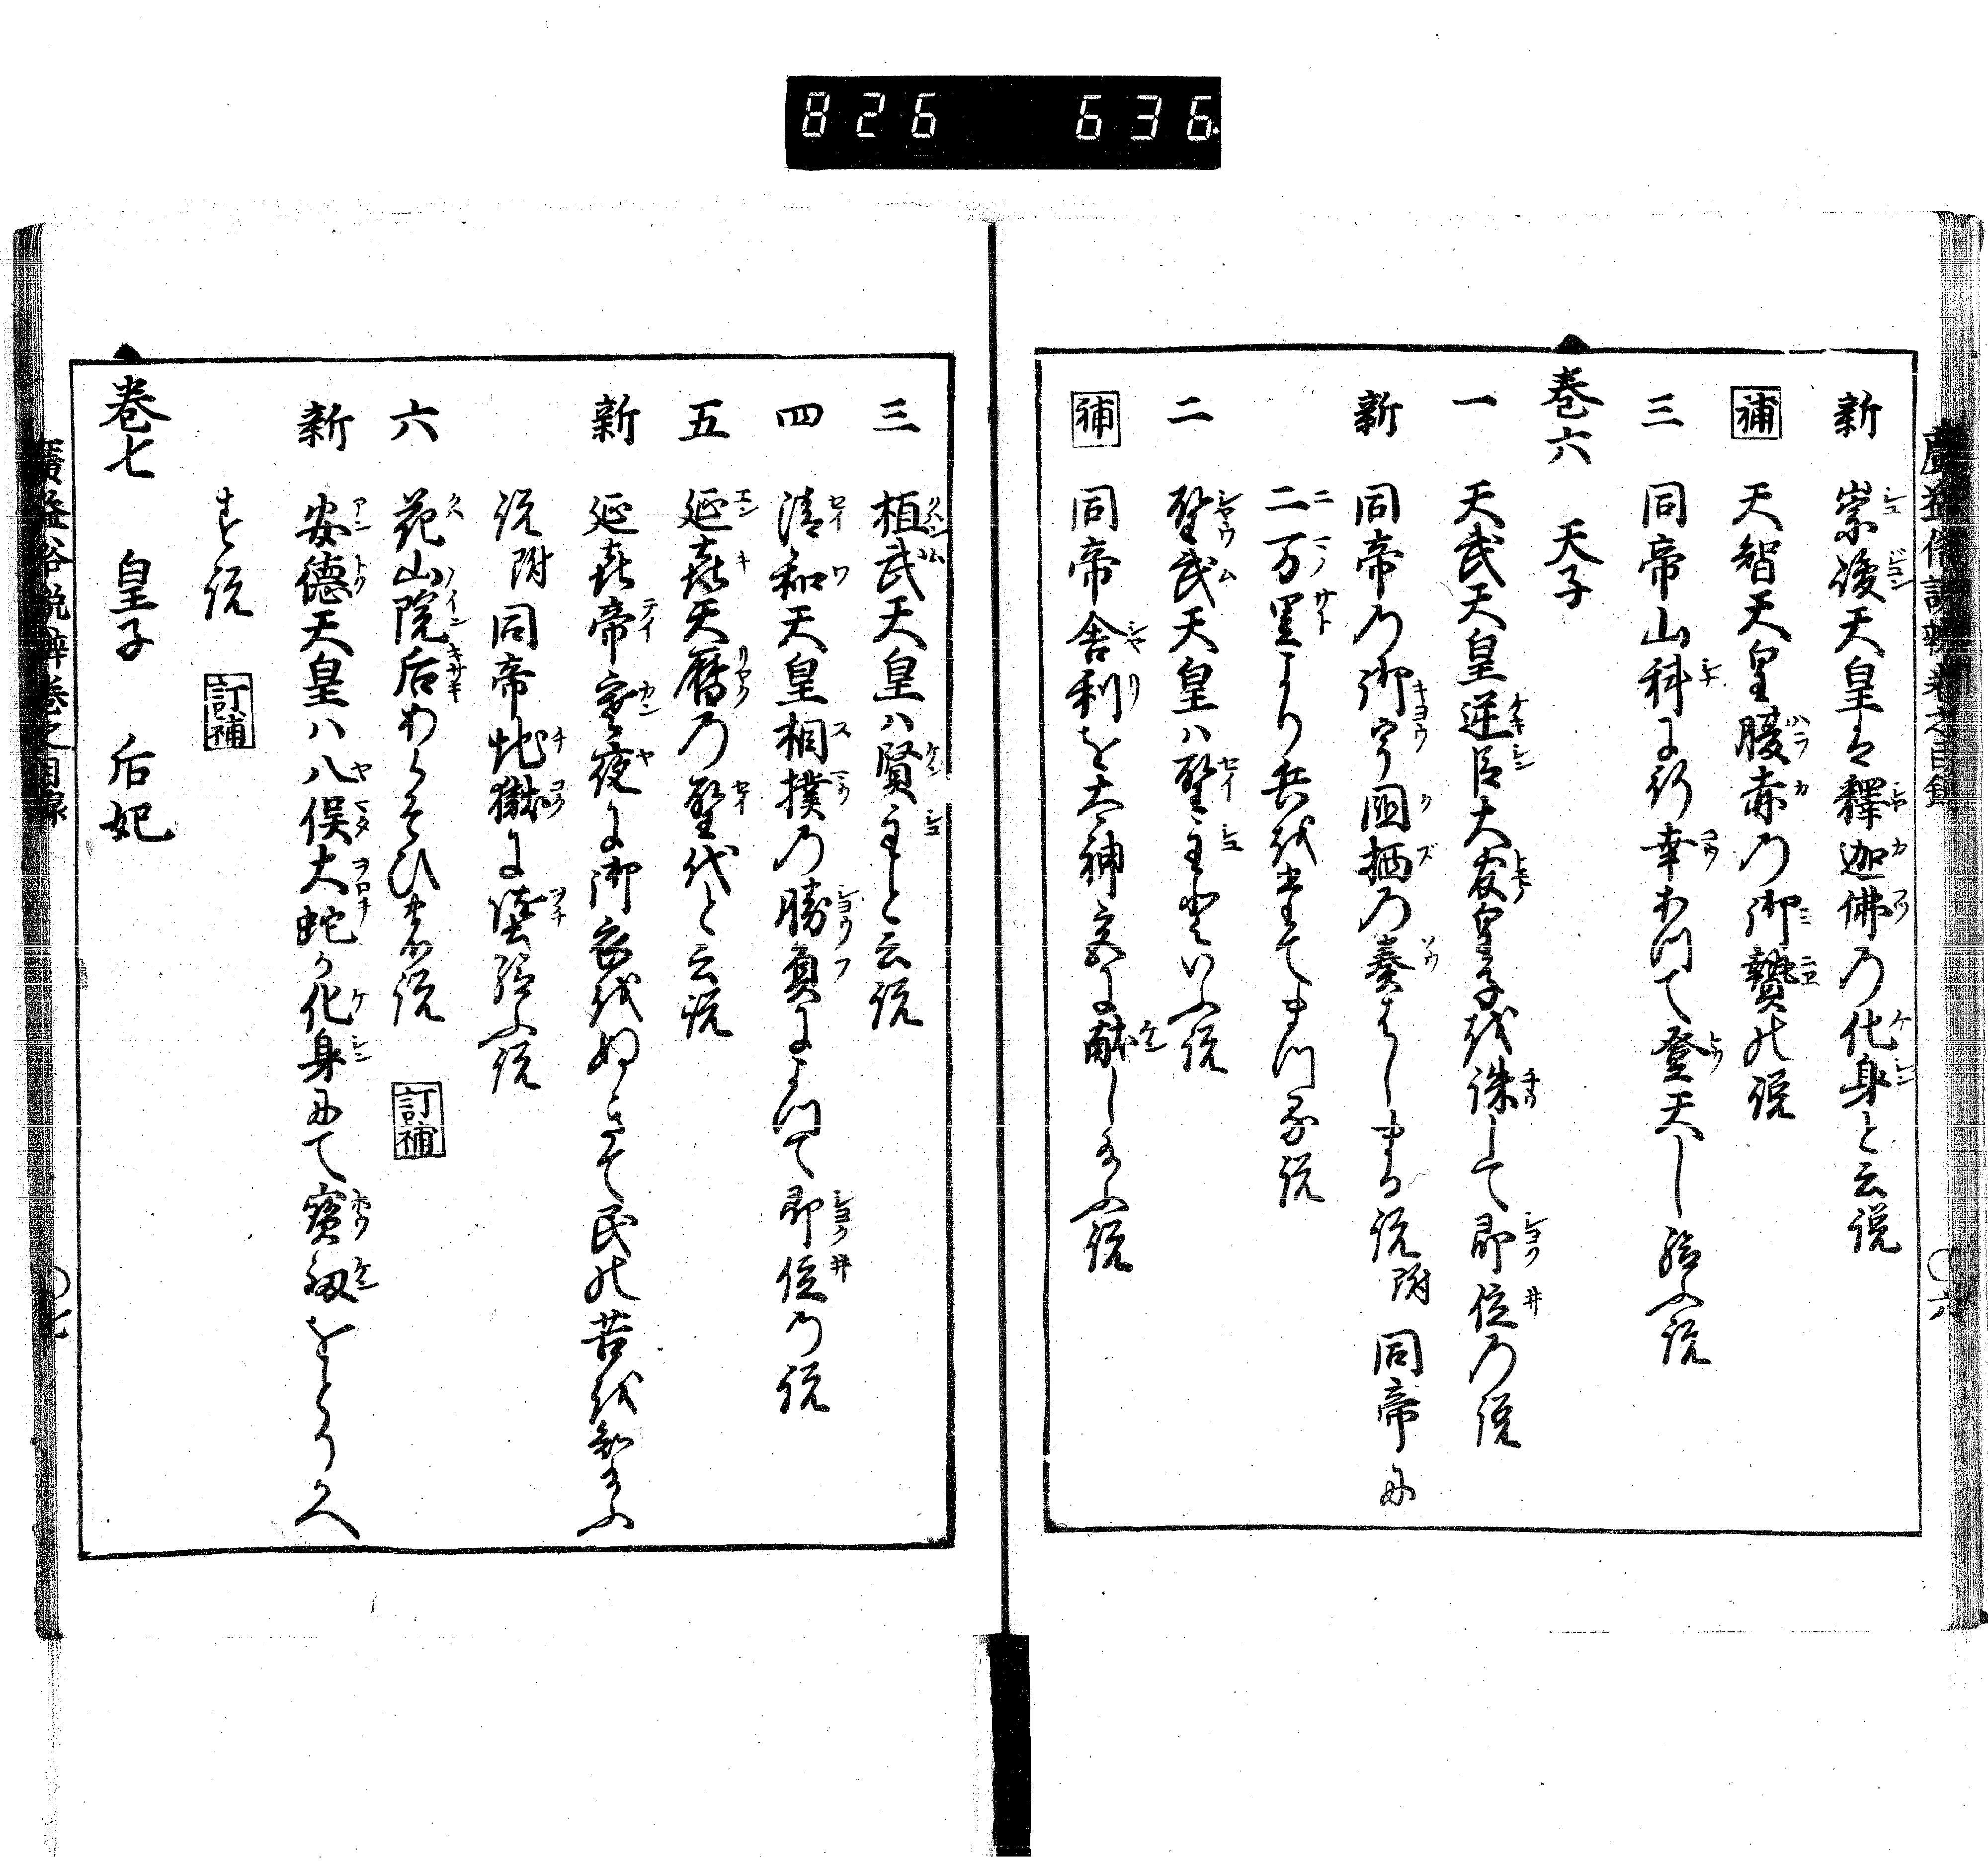 826 636
廣益俗説辨巻之目録 〇六
新 崇峻天皇は釋迦佛の化身と云説
補 天智天皇腹赤の御贄の説
三 同帝山科に行幸あつて登天し給ふ説
巻六 天子
一 天武天皇逆臣大友皇子を誅して即位の説
新 同帝の御宇国栖の奏はしまる説附同帝に
二万里より兵を奉てまつる説
二 聖武天皇ハ聖主といふ説
補 同帝舎利を大神宮に献し給ふ説
三 桓武天皇ハ賢主と云説
四 清和天皇相撲の勝負によつて即位の説
五 延㐂天暦の聖代と云説
新 延㐂帝寒夜に御衣をぬきて民の苦を知給ふ
説附同帝地獄に堕給ふ説
六 花山院后あらそひの説 訂補
新 安德天皇ハ八俣大蛇か化身にて寳劔をとりかへ
す説 訂補
巻七 皇子 后妃
廣益俗説辨巻之目録 〇七